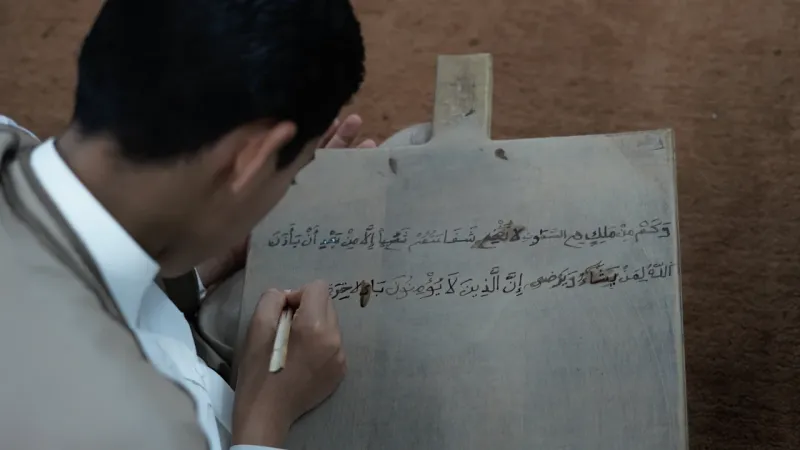 وَكَمْ مِنْ مَلَكٍ فِي السَّمَاوَاتِ لَا تُغْنِي شَفَاعَتُهُمْ شَيْئاً إِلَّا مِنْ بَعْدِ أَنْ يَأْذَنَ
اللَّهُ لِمَنْ يَشَاءُ وَيَرْضَى إِنَّ الَّذِينَ لَا يُؤْمِنُونَ بِالْآخِرَةِ